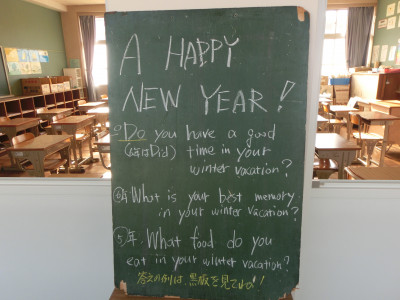 A HAPPY
NEW YEAR!
Do you have a good
(Did) time in your
winter vacation?
⑥年What is your best memory
in your winter vacation?
⑤年. What food do you
eat in your winter vacation?
答えの例は、黒板を見てね!!